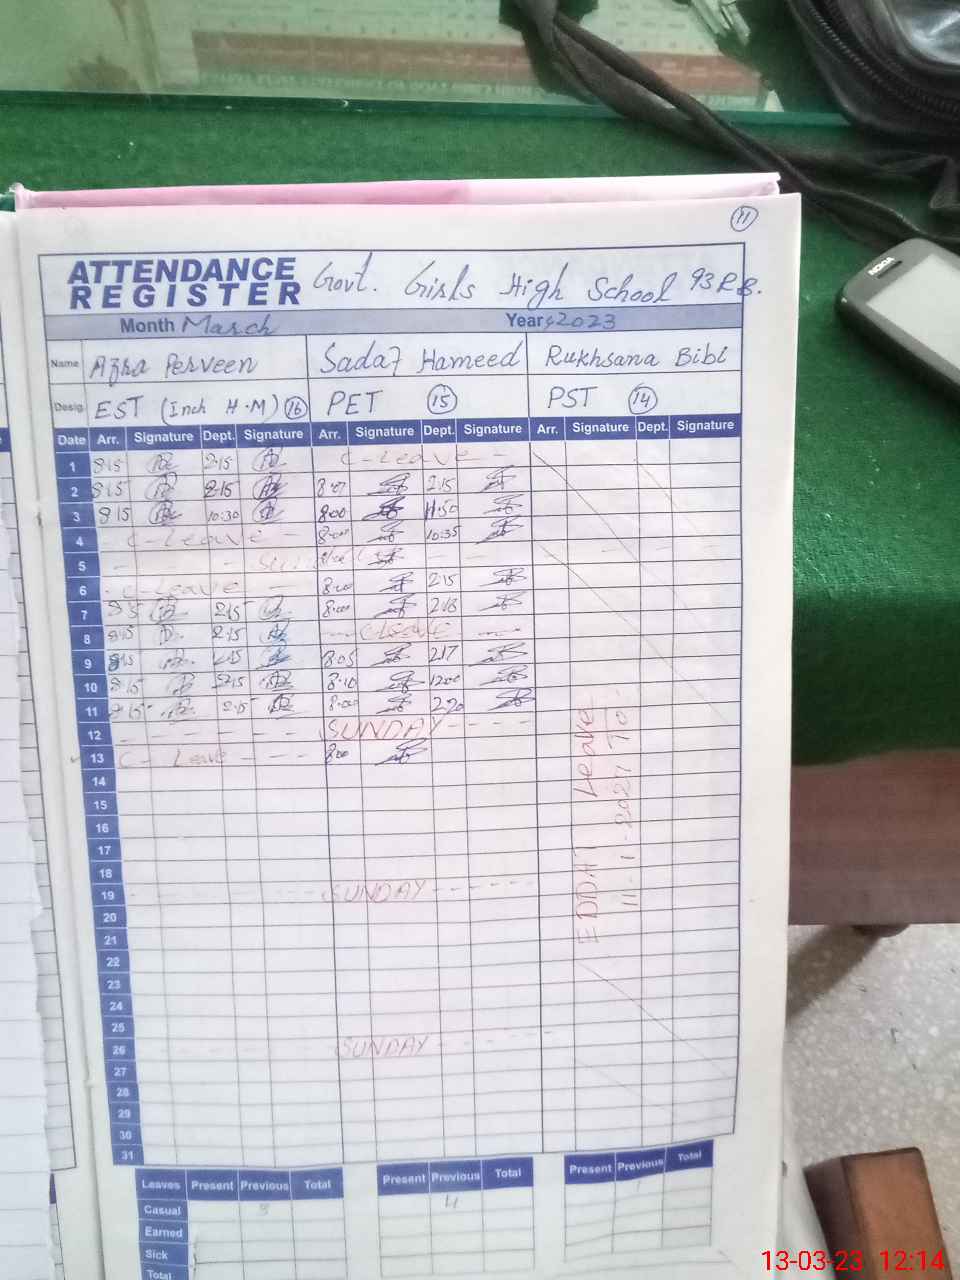 11
ATTENDANCE REGISTER Govt. Girls High School 93 R.B.
Month March Year 2023
Name Azra Perveen Sadaf Hameed Rukhsana Bibi
Desig. EST (Inch H.M) 16 PET 15 PST 14
Date Arr. Signature Dept. Signature Arr. Signature Dept. Signature Arr. Signature Dept. Signature
1 8:15 2:15 C-Leave
2 8:15 2:15 2:15
3 8:15 10:30 8:00 11:50
4 C-Leave 8:00 10:35
5
6 C-Leave 8:00 2:15
7 2:15 8:00 2:18
8 8:15 2:15 C-Leave
9 8:15 2:15 8:05 2:17
10 8:15 2:15 8:10 12:00
11 8:15 2:15 8:00 2:20
12 SUNDAY
13 C-Leave 8:00
14
15
16
17
18
19 SUNDAY
20
21
22
23
24
25
26 SUNDAY
27
28
29
30
31
EDDAT Leave
11-1-2023 To
Leaves Present Previous Total Present Previous Total Present Previous Total
Casual 4
Earned
Sick
Total
NOKIA
13-03-23 12:14